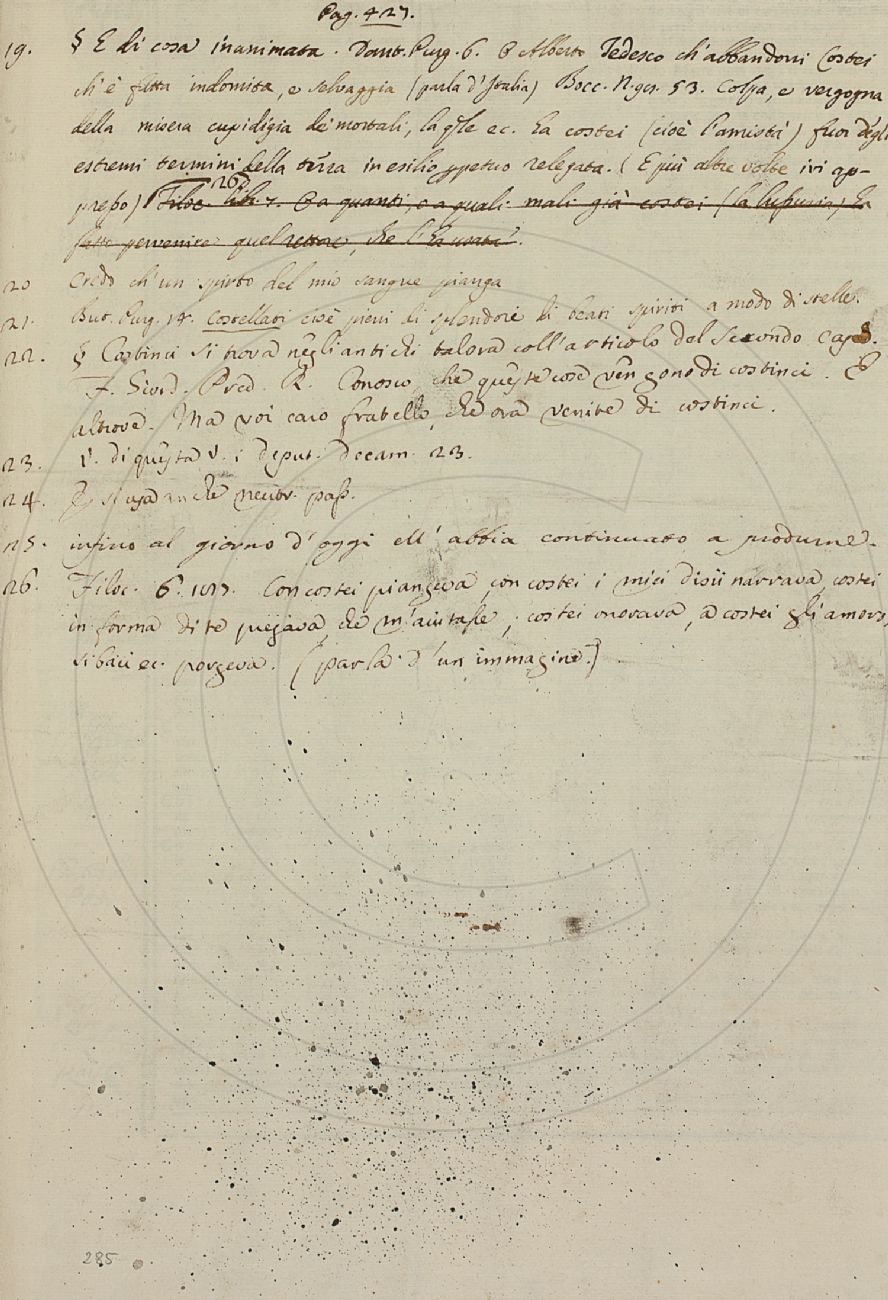 Pag. 427.
19. § E di cosa inanimata. Dant. Purg. 6. O Alberto Tedesco ch'abbandoni Costei
ch'è fatta indomita, e selvaggia (parla d'Italia) Bocc. N. 98. 53. Colpa, e vergogna
della misera cupidigia de' mortali, la qle ec. ha costei (cioè l'amistà) fuor degli
estremi termini della terra in esilio ppetuo relegata. (E più altre volte ivi ap-
presso) 26 Filoc. lib. 7. O a quanti, e a quali mali già costei (la lussuria) ha
fatto pervenire quel rettore, che l'ha usata.
20 Credo ch'un spirto del mio sangue pianga
21. But. Purg. 14. Costellati cioè pieni di splendore di beati spiriti a modo di stelle.
22. § Costinci si trova negli antichi talora coll'articolo del secondo caso.
F. Giord. Pred. R. Conosco, che queste cose vengono di costinci. E
altrove. Ma voi caro fratello, che ora venite di costinci.
23. V. di questa V. i Deput. Decam. 23.
24. E si usa anche neutr. pass.
25. infino al giorno d'oggi ell' abbia continuato a produrne.
26. Filoc. 6. Con costei piangeva, con costei i miei disii narrava, costei
in forma di te pregava, che m'aiutasse, costei onorava, a costei gli amoro,
si baci ec. porgeva. (parla d'un immagine.)
285